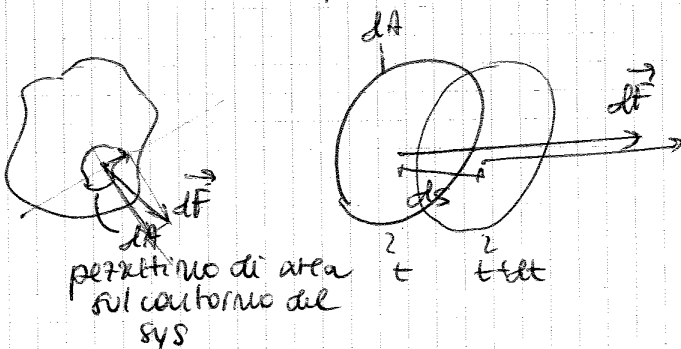 dA
dF
dA
dF
ds
pezzettino di area
sul contorno del
sys
t
t+dt